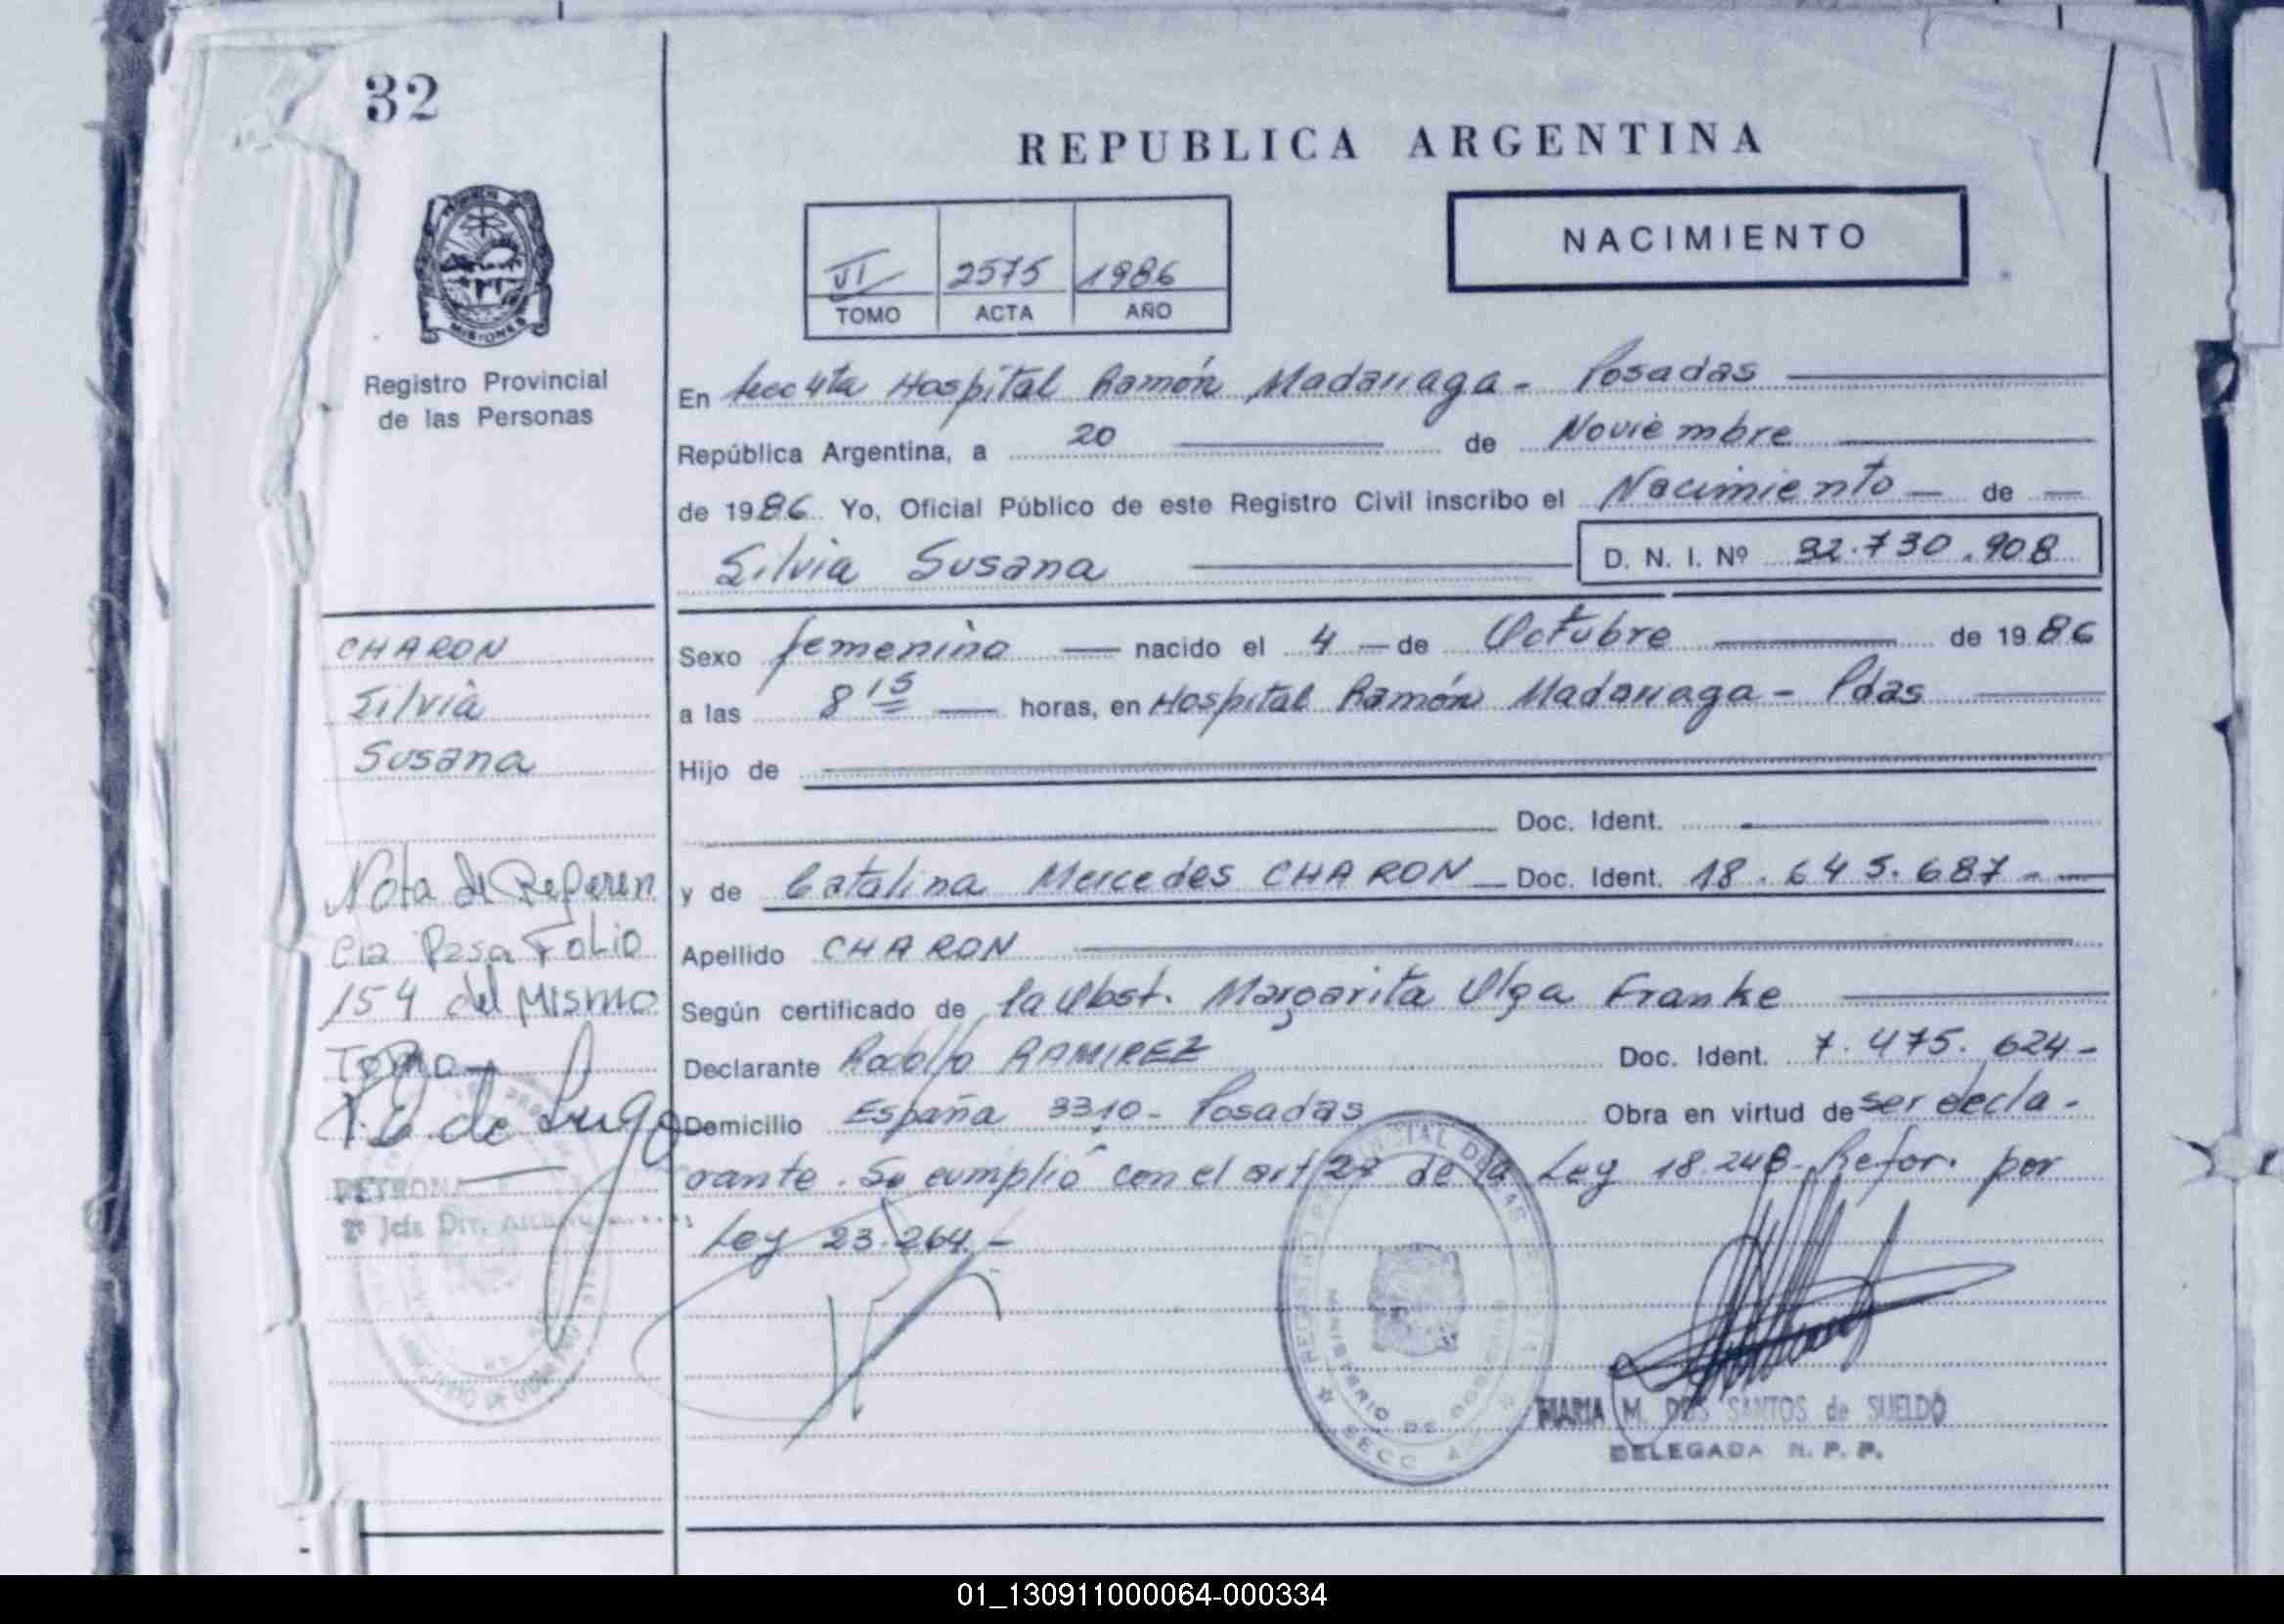 32
REPUBLICA ARGENTINA
NACIMIENTO
VI 2575 1986
TOMO ACTA AÑO
MISIONES
Registro Provincial
de las Personas
En Secc 4ta Hospital Ramón Madariaga - Posadas
República Argentina, a 20 de Noviembre
de 1986 Yo, Oficial Público de este Registro Civil inscribo el Nacimiento - de -
Silvia Susana
D. N. I. Nº 32.730.908
CHARON
Silvia
Susana
Sexo femenino — nacido el 4 — de Octubre de 1986
a las 8 15 — horas, en Hospital Ramón Madariaga - Pdas
Hijo de
Doc. Ident.
y de Catalina Mercedes CHARON - Doc. Ident. 18.645.687 -
Apellido CHARON
Según certificado de la Obst. Margarita Olga Franke
Declarante Rodolfo RAMIREZ Doc. Ident. 7.475.624 -
Domicilio España 3310 - Posadas Obra en virtud de ser decla-
rante. Se cumplió con el art 27 de la Ley 18.248 - Refor. por
Ley 23.264. -
Nota de Referen
cia Pasa Folio
154 del Mismo
Tomo
de Lugo
PETRONA
2º Jefe Div.
MINISTERIO DE GOBIERNO
SECC
MARIA M. DOS SANTOS de SUELDO
DELEGADA R. P. P.
01_130911000064-000334